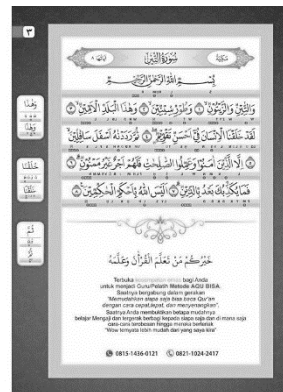 ٣
سُورَةُ التِّيْنِ
بِسْمِ اللّٰهِ الرَّحْمٰنِ الرَّحِيْمِ
وَالتِّيْنِ وَالزَّيْتُوْنِ ١ وَطُوْرِ سِيْنِيْنَ ٢ وَهٰذَا الْبَلَدِ الْاَمِيْنِ ٣
لَقَدْ خَلَقْنَا الْاِنْسَانَ فِيْٓ اَحْسَنِ تَقْوِيْمٍ ٤ ثُمَّ رَدَدْنٰهُ اَسْفَلَ سَافِلِيْنَ ٥
اِلَّا الَّذِيْنَ اٰمَنُوْا وَعَمِلُوا الصّٰلِحٰتِ فَلَهُمْ اَجْرٌ غَيْرُ مَمْنُوْنٍ ٦
فَمَا يُكَذِّبُكَ بَعْدُ بِالدِّيْنِ ٧ اَلَيْسَ اللّٰهُ بِاَحْكَمِ الْحٰكِمِيْنَ ٨
وَهٰذَا
وَهٰذَا
خَلَقْنَا
خَلَقْنَا
ثُمَّ
خَيْرُكُمْ مَنْ تَعَلَّمَ الْقُرْآنَ وَعَلَّمَهُ
Terbuka kesempatan emas bagi Anda
untuk menjadi Guru/Pelatih Metode AQU BISA.
Saatnya bergabung dalam gerakan
"Memudahkan siapa saja bisa baca Qur'an
dengan cara cepat, tepat, dan menyenangkan".
Saatnya Anda membuktikan betapa mudahnya
belajar Mengaji dan tergerak berbagi kepada siapa saja dan di mana saja
cara-cara terobosan hingga mereka berteriak
"Wow ternyata lebih mudah dari yang saya kira"
0815-1436-0121 0821-1024-2417